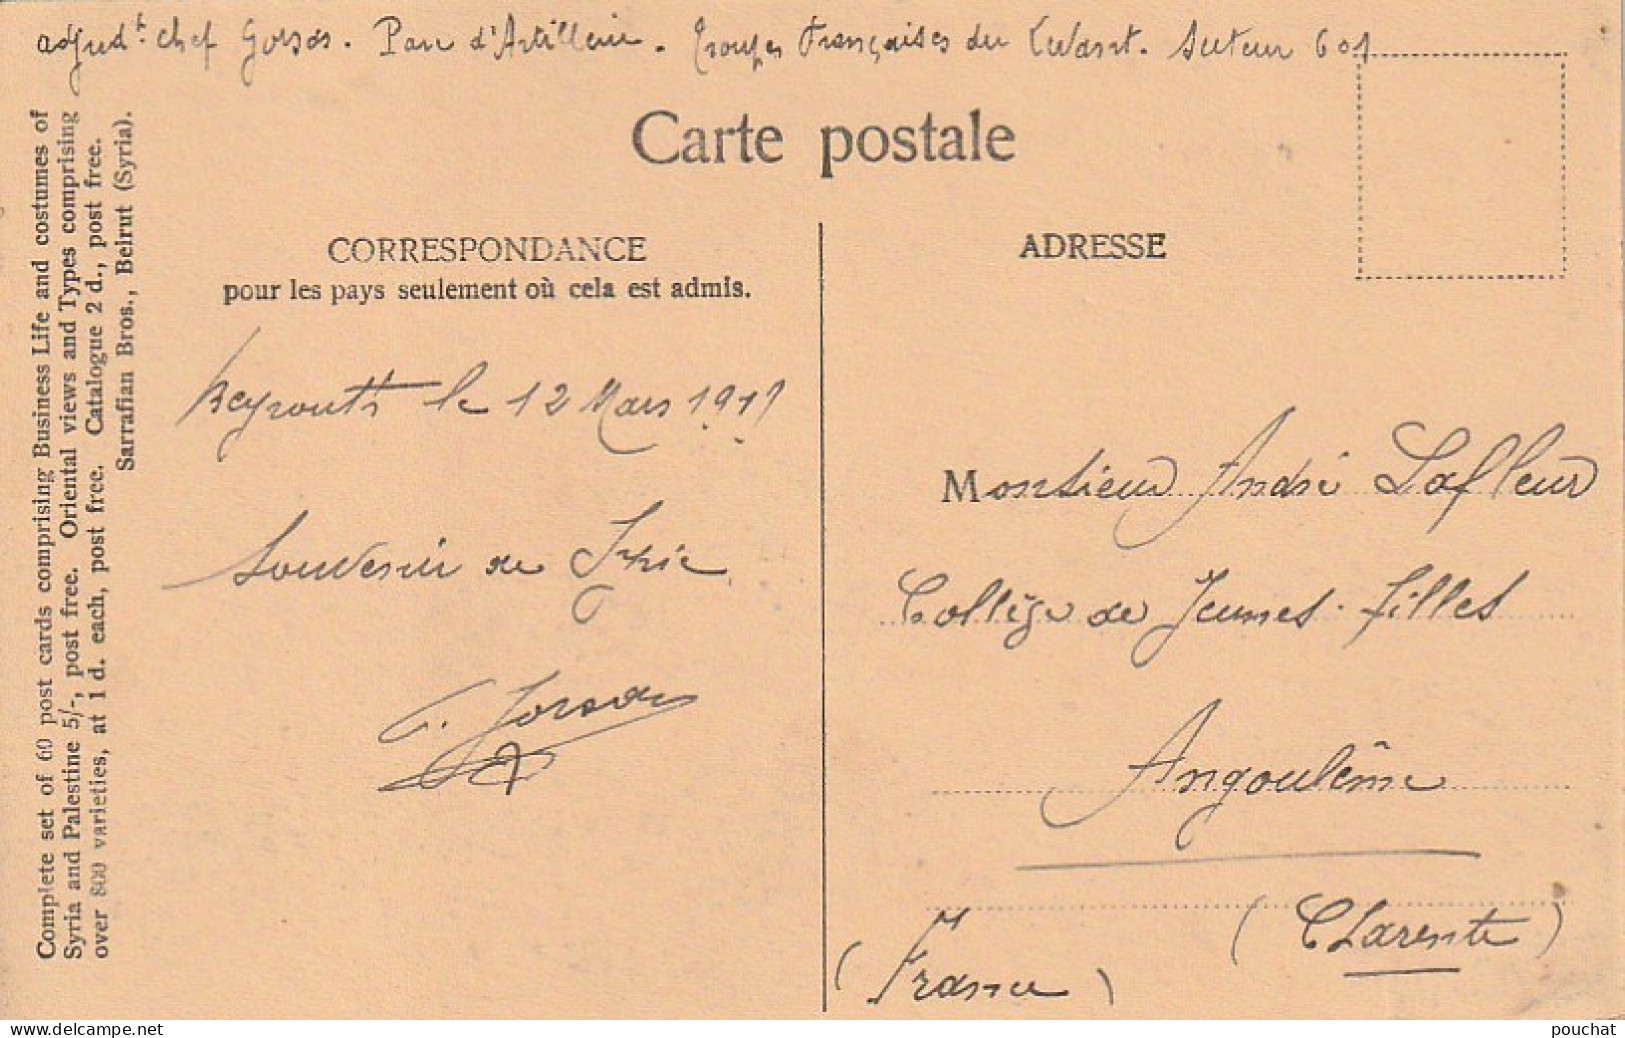 adjud.t chef Gorsas. Parc d'Artillerie. Troupes Françaises du Levant. Secteur 601
Carte postale
Complete set of 60 post cards comprising Business Life and costumes of
Syria and Palestine 5/-, post free. Oriental views and Types comprising
over 800 varieties, at 1 d. each, post free. Catalogue 2 d., post free.
Sarrafian Bros., Beirut (Syria).
CORRESPONDANCE
pour les pays seulement où cela est admis.
Beyrouth le 12 Mars 1919
Souvenir de Syrie
G. Gorsas
ADRESSE
Monsieur André Lafleur
Collège de Jeunes filles
Angoulême
(Charente)
(France)
pouchat